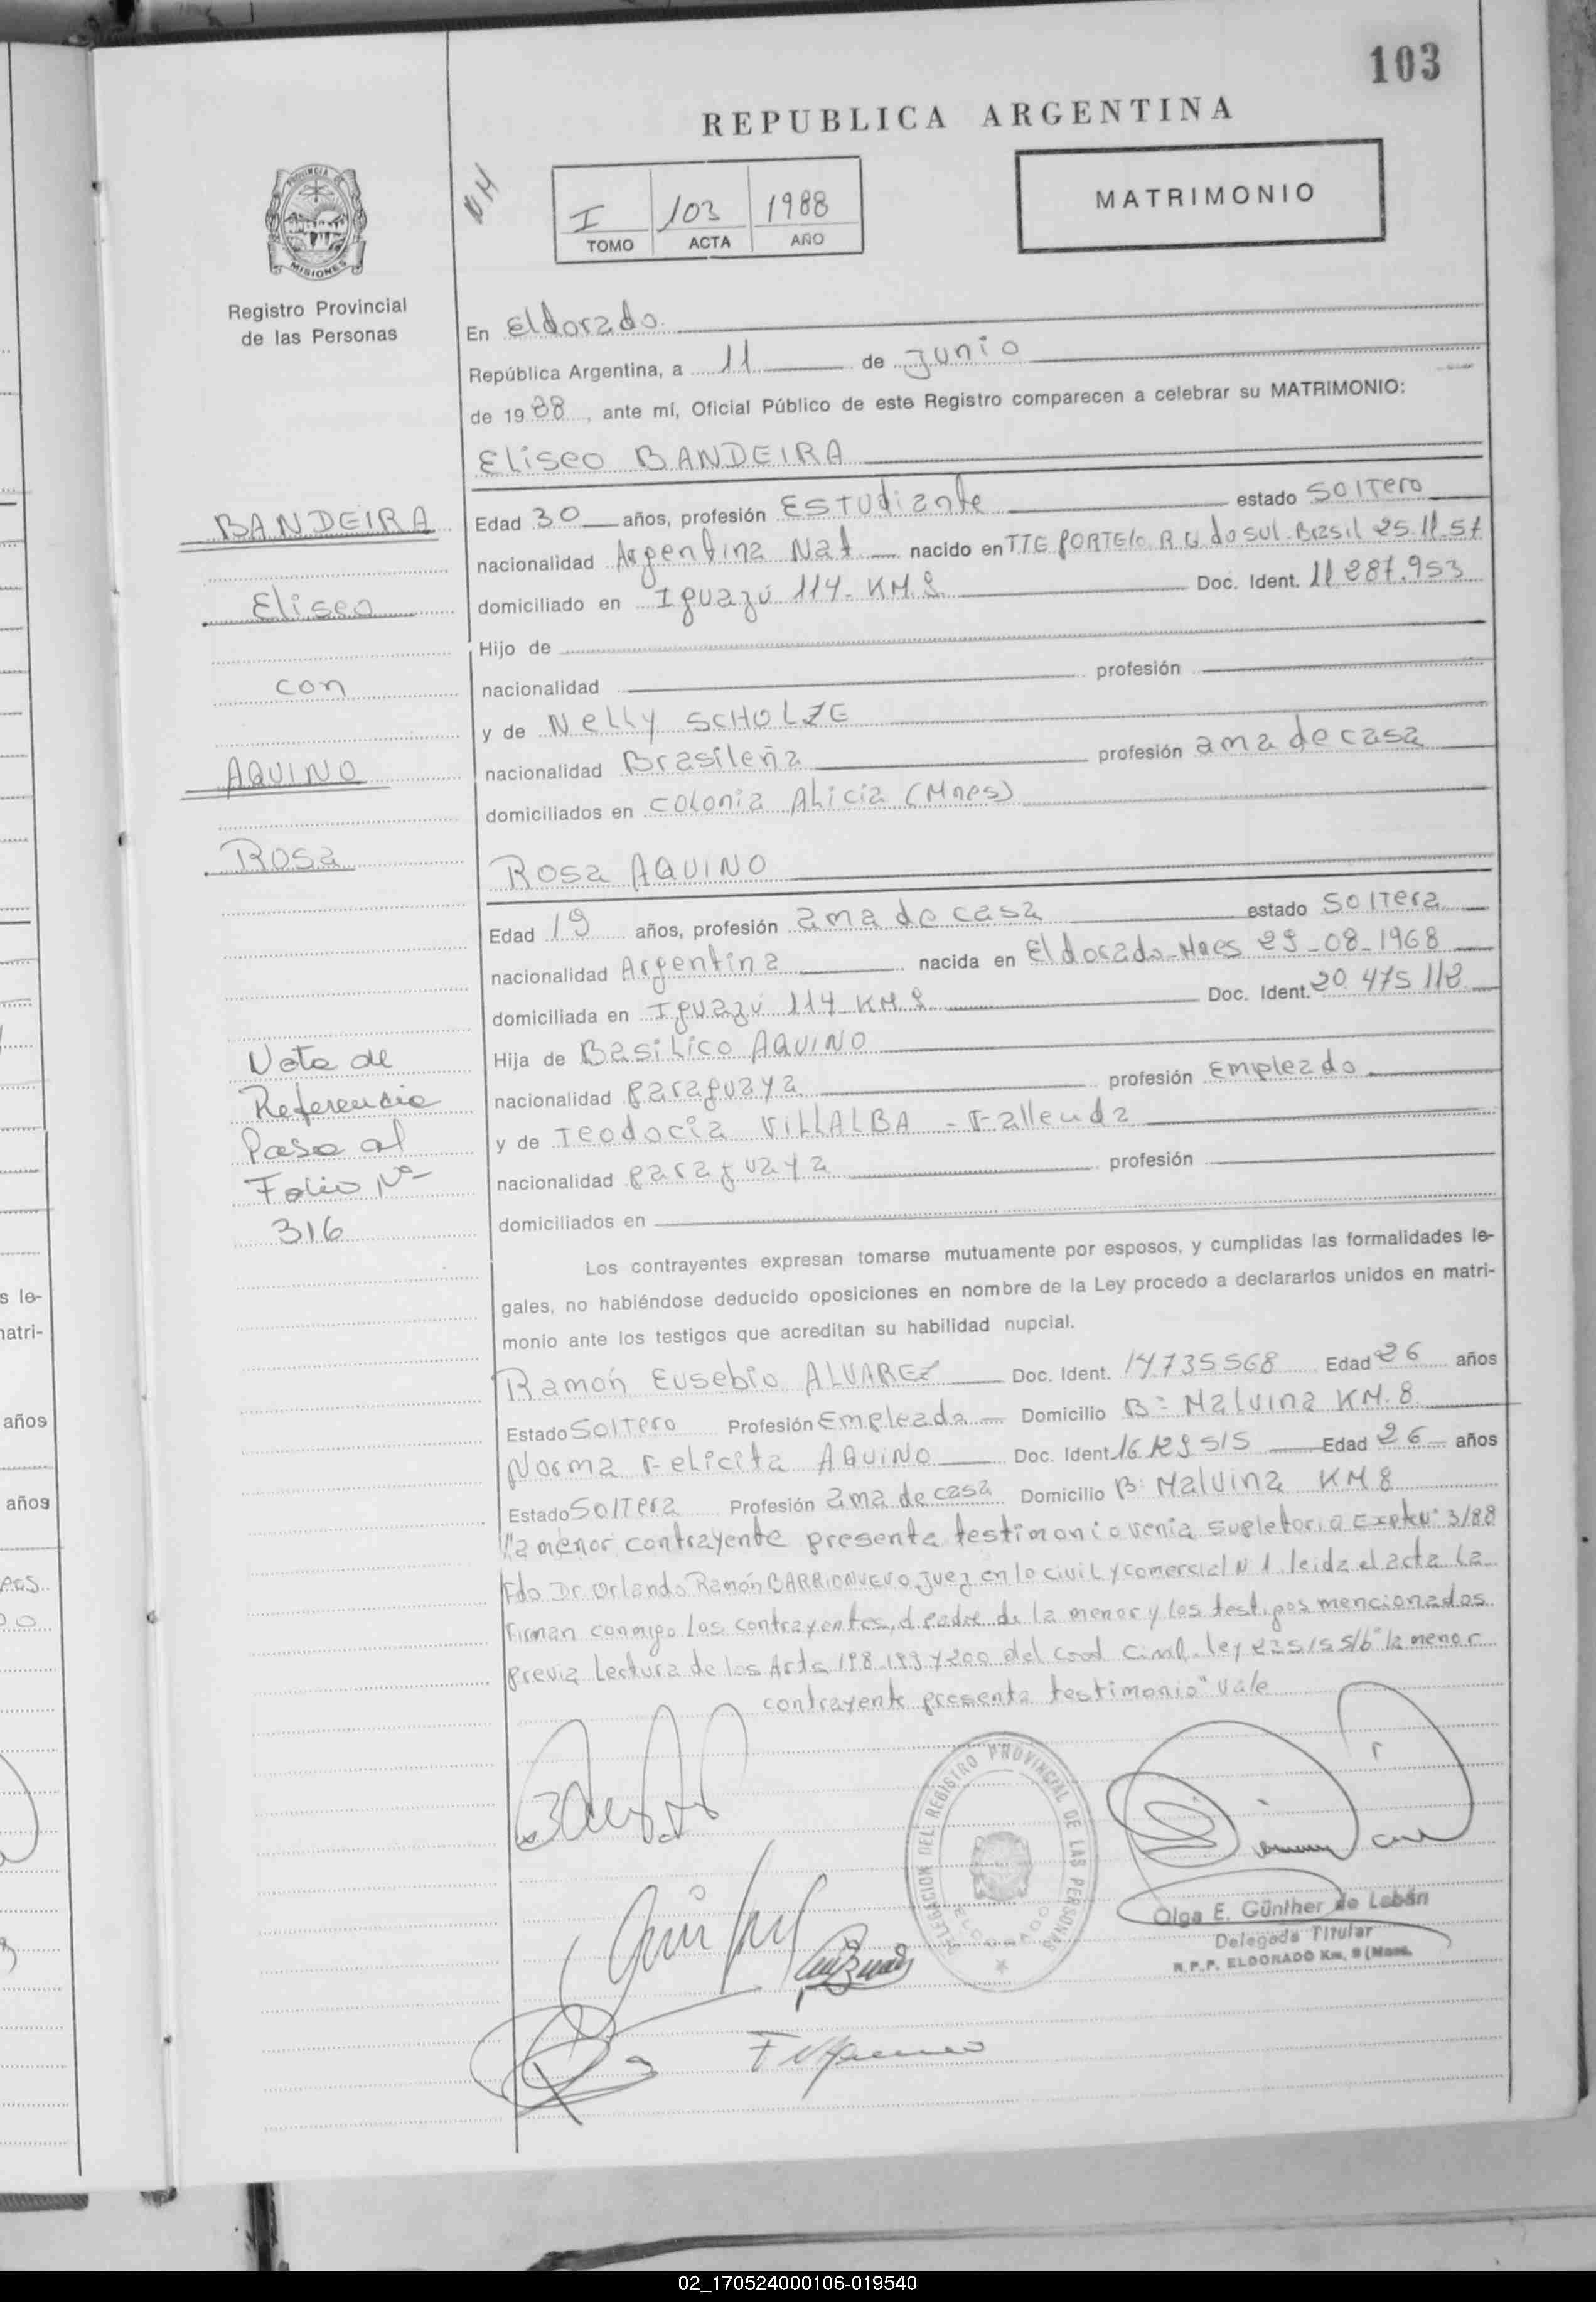 103
REPUBLICA ARGENTINA
PROVINCIA DE
MISIONES
Registro Provincial
de las Personas
I 103 1988
TOMO ACTA AÑO
MATRIMONIO
En Eldorado
República Argentina, a 11 de Junio
de 1988, ante mí, Oficial Público de este Registro comparecen a celebrar su MATRIMONIO:
Eliseo BANDEIRA
Edad 30 años, profesión Estudiante estado Soltero
nacionalidad Argentina Nat nacido en TTE PORTELO R.G. do Sul Brasil 25.11.57
domiciliado en Iguazú 114 - KM. 9 Doc. Ident. 11 287.953
Hijo de
nacionalidad profesión
y de Nelly SCHOLZE
nacionalidad Brasileña profesión ama de casa
domiciliados en Colonia Alicia (Mnes)
Rosa AQUINO
Edad 19 años, profesión ama de casa estado Soltera
nacionalidad Argentina nacida en Eldorado-Mnes 29-08-1968
domiciliada en Iguazú 114 KM. 9 Doc. Ident. 20.475.112
Hija de Basilico AQUINO
nacionalidad paraguaya profesión Empleado
y de Teodocia VILLALBA - Fallecida
nacionalidad paraguaya profesión
domiciliados en
Los contrayentes expresan tomarse mutuamente por esposos, y cumplidas las formalidades le-
gales, no habiéndose deducido oposiciones en nombre de la Ley procedo a declararlos unidos en matri-
monio ante los testigos que acreditan su habilidad nupcial.
Ramón Eusebio ALVAREZ Doc. Ident. 14735568 Edad 26 años
Estado Soltero Profesión Empleado Domicilio B= Malvina KM. 8
Norma Felicita AQUINO Doc. Ident. 16129515 Edad 26 años
Estado Soltera Profesión ama de casa Domicilio B: Malvina KM 8
"la menor contrayente presenta testimonio venia supletoria Expte N° 3/88
Fdo Dr Orlando Ramón BARRIONUEVO Juez en lo civil y comercial N 1. leida el acta la
firman conmigo los contrayentes, el padre de la menor y los testigos mencionados
previa Lectura de los Arts 198.199 y 200 del Cod Civil. ley 23515 S/b "la menor
contrayente presenta testimonio" vale
BANDEIRA
Eliseo
con
AQUINO
Rosa
Nota de
Referencia
Pasa al
Folio Nº
316
DELEGACION DEL REGISTRO PROVINCIAL DE LAS PERSONAS
ELDORADO
Olga E. Günther de Labán
Delegada Titular
R.P.P. ELDORADO Km. 9 (Mnes.
s le-
natri-
años
años
02_170524000106-019540